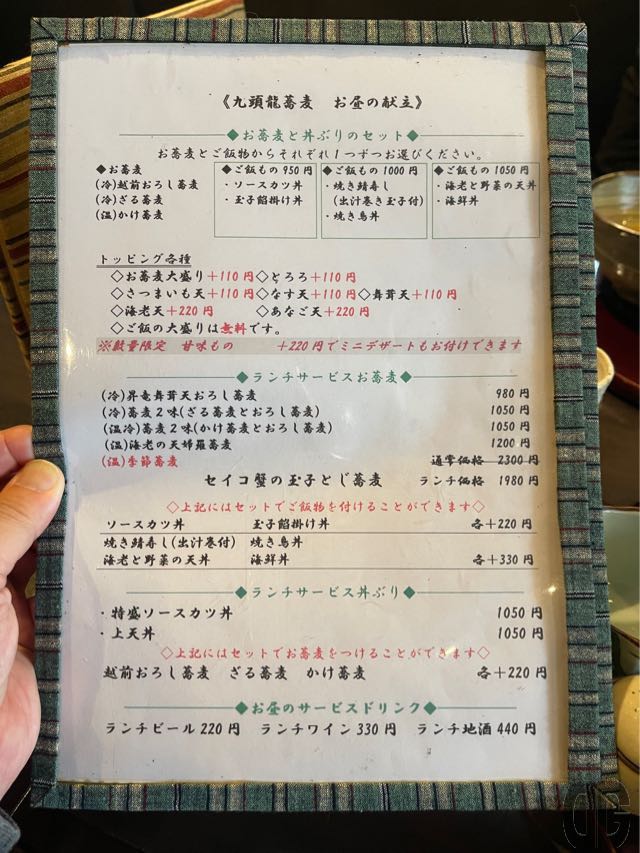 《九頭龍蕎麦　お昼の献立》
◆お蕎麦と丼ぶりのセット◆
お蕎麦とご飯物からそれぞれ１つずつお選びください。
◆お蕎麦
(冷)越前おろし蕎麦
(冷)ざる蕎麦
(温)かけ蕎麦
◆ご飯もの 950 円
・ソースカツ丼
・玉子餡掛け丼
◆ご飯もの 1000 円
・焼き鯖寿し
(出汁巻き玉子付)
・焼き鳥丼
◆ご飯もの 1050 円
・海老と野菜の天丼
・海鮮丼
トッピング各種
◇お蕎麦大盛り＋110 円◇とろろ＋110 円
◇さつまいも天＋110 円◇なす天＋110 円◇舞茸天＋110 円
◇海老天＋220 円　◇あなご天＋220 円
◇ご飯の大盛りは無料です。
※数量限定　甘味もの　＋220 円でミニデザートもお付けできます
◆ランチサービスお蕎麦◆
(冷)昇竜舞茸天おろし蕎麦　980 円
(冷)蕎麦２味(ざる蕎麦とおろし蕎麦)　1050 円
(温冷)蕎麦２味(かけ蕎麦とおろし蕎麦)　1050 円
(温)海老の天婦羅蕎麦　1200 円
(温)季節蕎麦　通常価格　2300 円
セイコ蟹の玉子とじ蕎麦　ランチ価格　1980 円
◇上記にはセットでご飯物を付けることができます◇
ソースカツ丼　玉子餡掛け丼　各＋220 円
焼き鯖寿し(出汁巻付)　焼き鳥丼
海老と野菜の天丼　海鮮丼　各＋330 円
◆ランチサービス丼ぶり◆
・特盛ソースカツ丼　1050 円
・上天丼　1050 円
◇上記にはセットでお蕎麦をつけることができます◇
越前おろし蕎麦　ざる蕎麦　かけ蕎麦　各＋220 円
◆お昼のサービスドリンク◆
ランチビール 220 円　ランチワイン 330 円　ランチ地酒 440 円